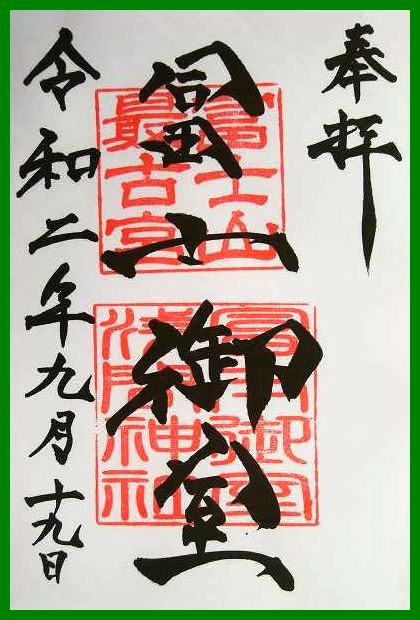 奉拝
冨士御室
富士山最古宮
冨士御室浅間神社
令和二年九月十九日